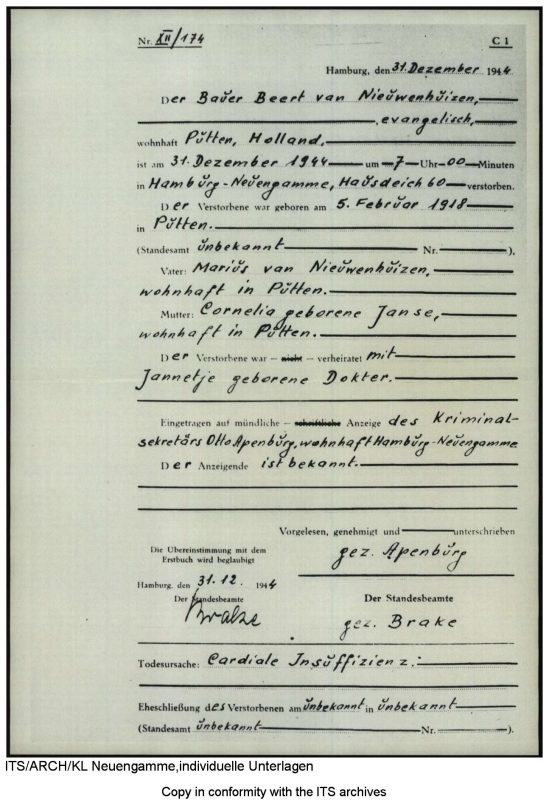 Nr. XII/174 C 1
Hamburg, den 31. Dezember 1944
Der Bauer Beert van Nieuwenhuizen,
, evangelisch,
wohnhaft Putten, Holland,
ist am 31. Dezember 1944 um 7 Uhr 00 Minuten
in Hamburg-Neuengamme, Hausdeich 60 verstorben.
Der Verstorbene war geboren am 5. Februar 1918
in Putten.
(Standesamt unbekannt Nr. ),
Vater: Marius van Nieuwenhuizen,
wohnhaft in Putten.
Mutter: Cornelia geborene Janse,
wohnhaft in Putten.
Der Verstorbene war – nicht – verheiratet mit
Jannetje geborene Dokter.
Eingetragen auf mündliche – schriftliche Anzeige des Kriminal-
sekretärs Otto Apenburg, wohnhaft Hamburg-Neuengamme
Der Anzeigende ist bekannt.
Vorgelesen, genehmigt und unterschrieben
gez. Apenburg
Die Übereinstimmung mit dem
Erstbuch wird beglaubigt
Hamburg, den 31.12. 1944
Der Standesbeamte
Brake
Der Standesbeamte
gez. Brake
Todesursache: Cardiale Insuffizienz.
Eheschließung des Verstorbenen am unbekannt in unbekannt
(Standesamt unbekannt Nr. ).
ITS/ARCH/KL Neuengamme,individuelle Unterlagen
Copy in conformity with the ITS archives